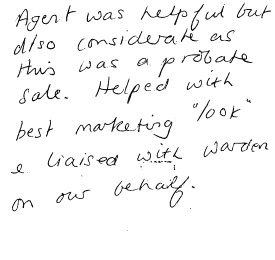 Agent was helpful but
also considerate as
this was a probate
sale. Helped with
best marketing "look"
& liaised with warden
on our behalf.